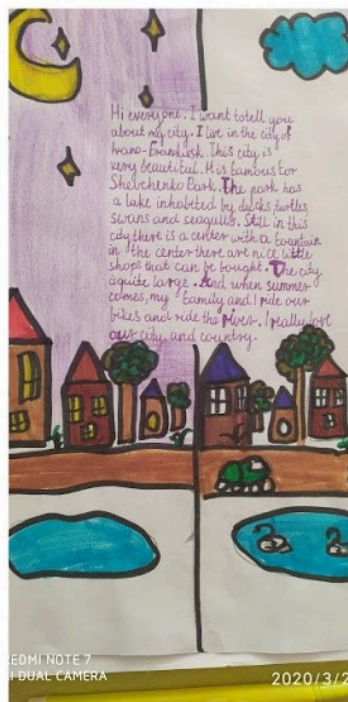 Hi everyone. I want totell you
about my city. I live in the city of
Ivano-Frankivsk. This city is
very beautiful. It is famous for
Shevchenko Park. The park has
a lake inhabited by ducks, turtles,
swans and seagulls. Still in this
city there is a center with a fountain
in the center there are nice little
shops that can be bought. The city
aquite large. And when summer
comes, my family and I ride our
bikes and ride the river. I really love
our city and country.
REDMI NOTE 7
I DUAL CAMERA
2020/3/2